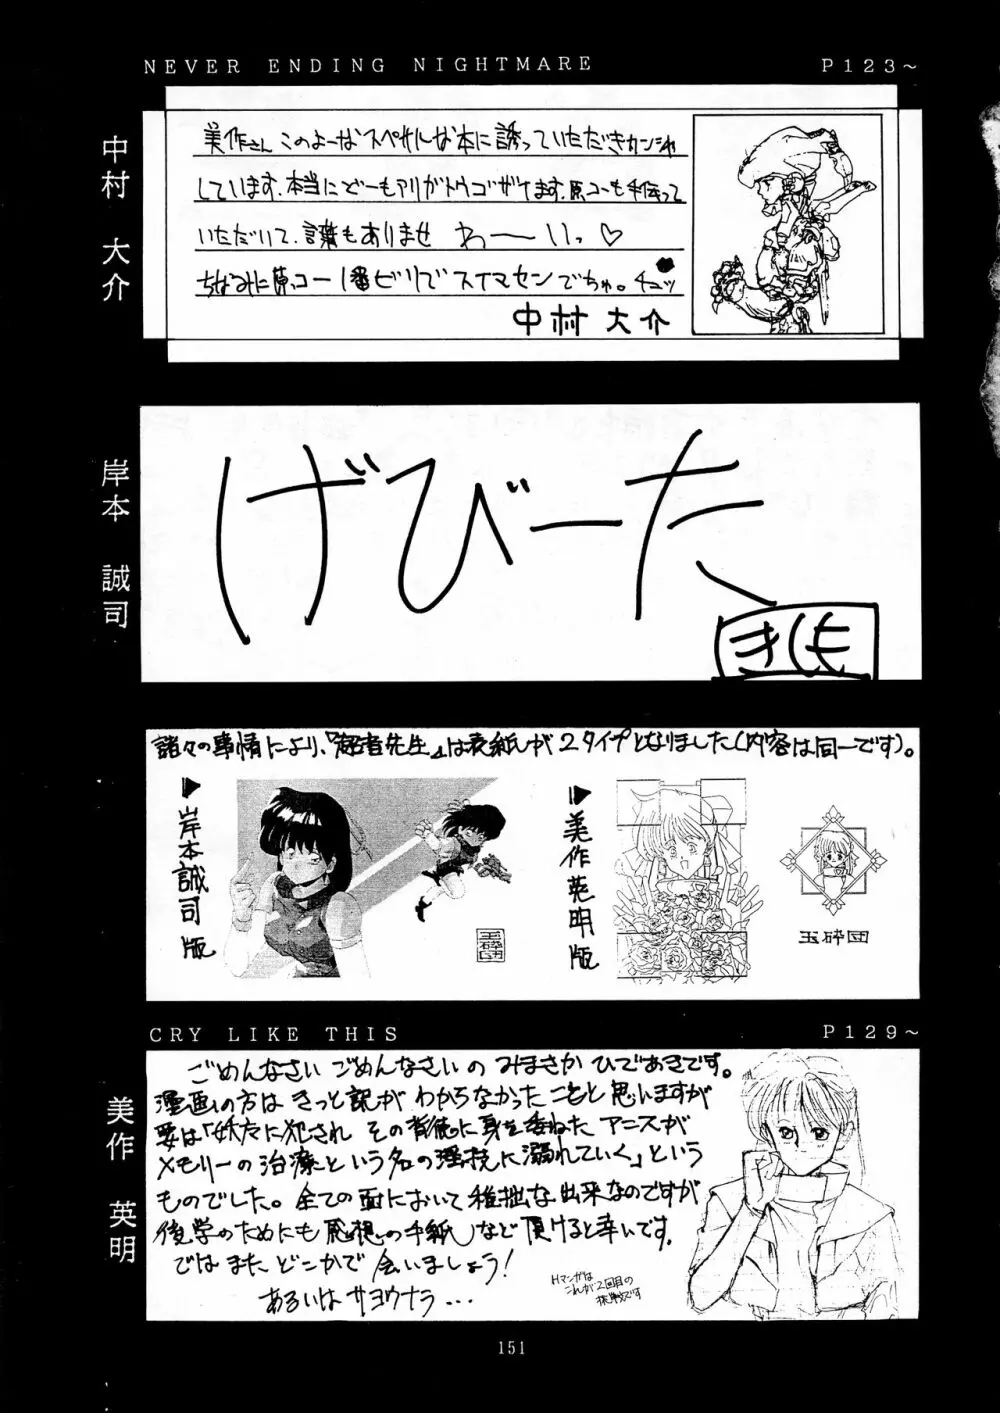 NEVER ENDING NIGHTMARE
P123～
中村 大介
美作さんこのよーなスペサルな本に誘っていただきカンシャ
しています。本当にどーもアリガトウゴザイます。原コーも手伝って
いただいて、言葉もありませ わーーいっ♡
ちなみに原コー1番ビリでスイマセンでちゅ。チュッ
中村 大介
岸本 誠司
げびーた
きしも
諸々の事情により、『超音先生』は表紙が2タイプとなりました(内容は同一です)。
▶岸本誠司版
玉砕団
▶美作英明版
玉砕団
CRY LIKE THIS
P129～
美作 英明
ごめんなさい ごめんなさいの みまさか ひであきです。
漫画の方は きっと訳が わからなかったことと思いますが
要は「妖女に犯され その背徳に身を委ねた アニスが
メモリーの治療という名の淫技に溺れていく」という
ものでした。全ての面において稚拙な出来なのですが
後学のためにも感想の手紙など頂けると幸いです。
では また どこかで 会いましょう!
あるいは サヨウナラ...
Hマンガは
これが2回目の
挑戦です
151